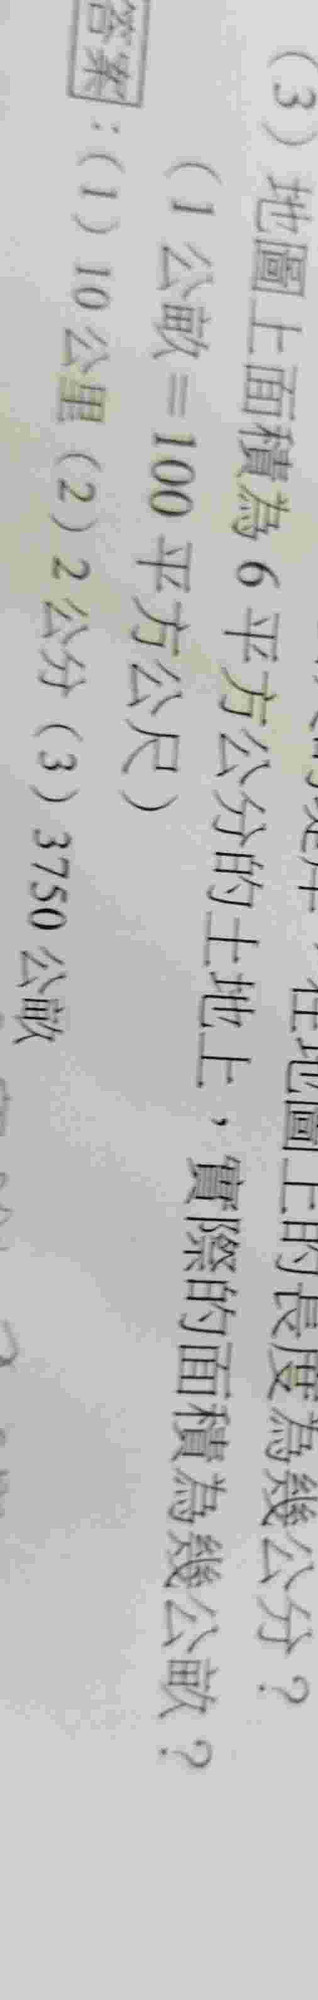 在地圖上的長度為幾公分？
（3）地圖上面積為 6 平方公分的土地上，實際的面積為幾公畝？
（1 公畝＝100 平方公尺）
答案：（1）10 公里（2）2 公分（3）3750 公畝